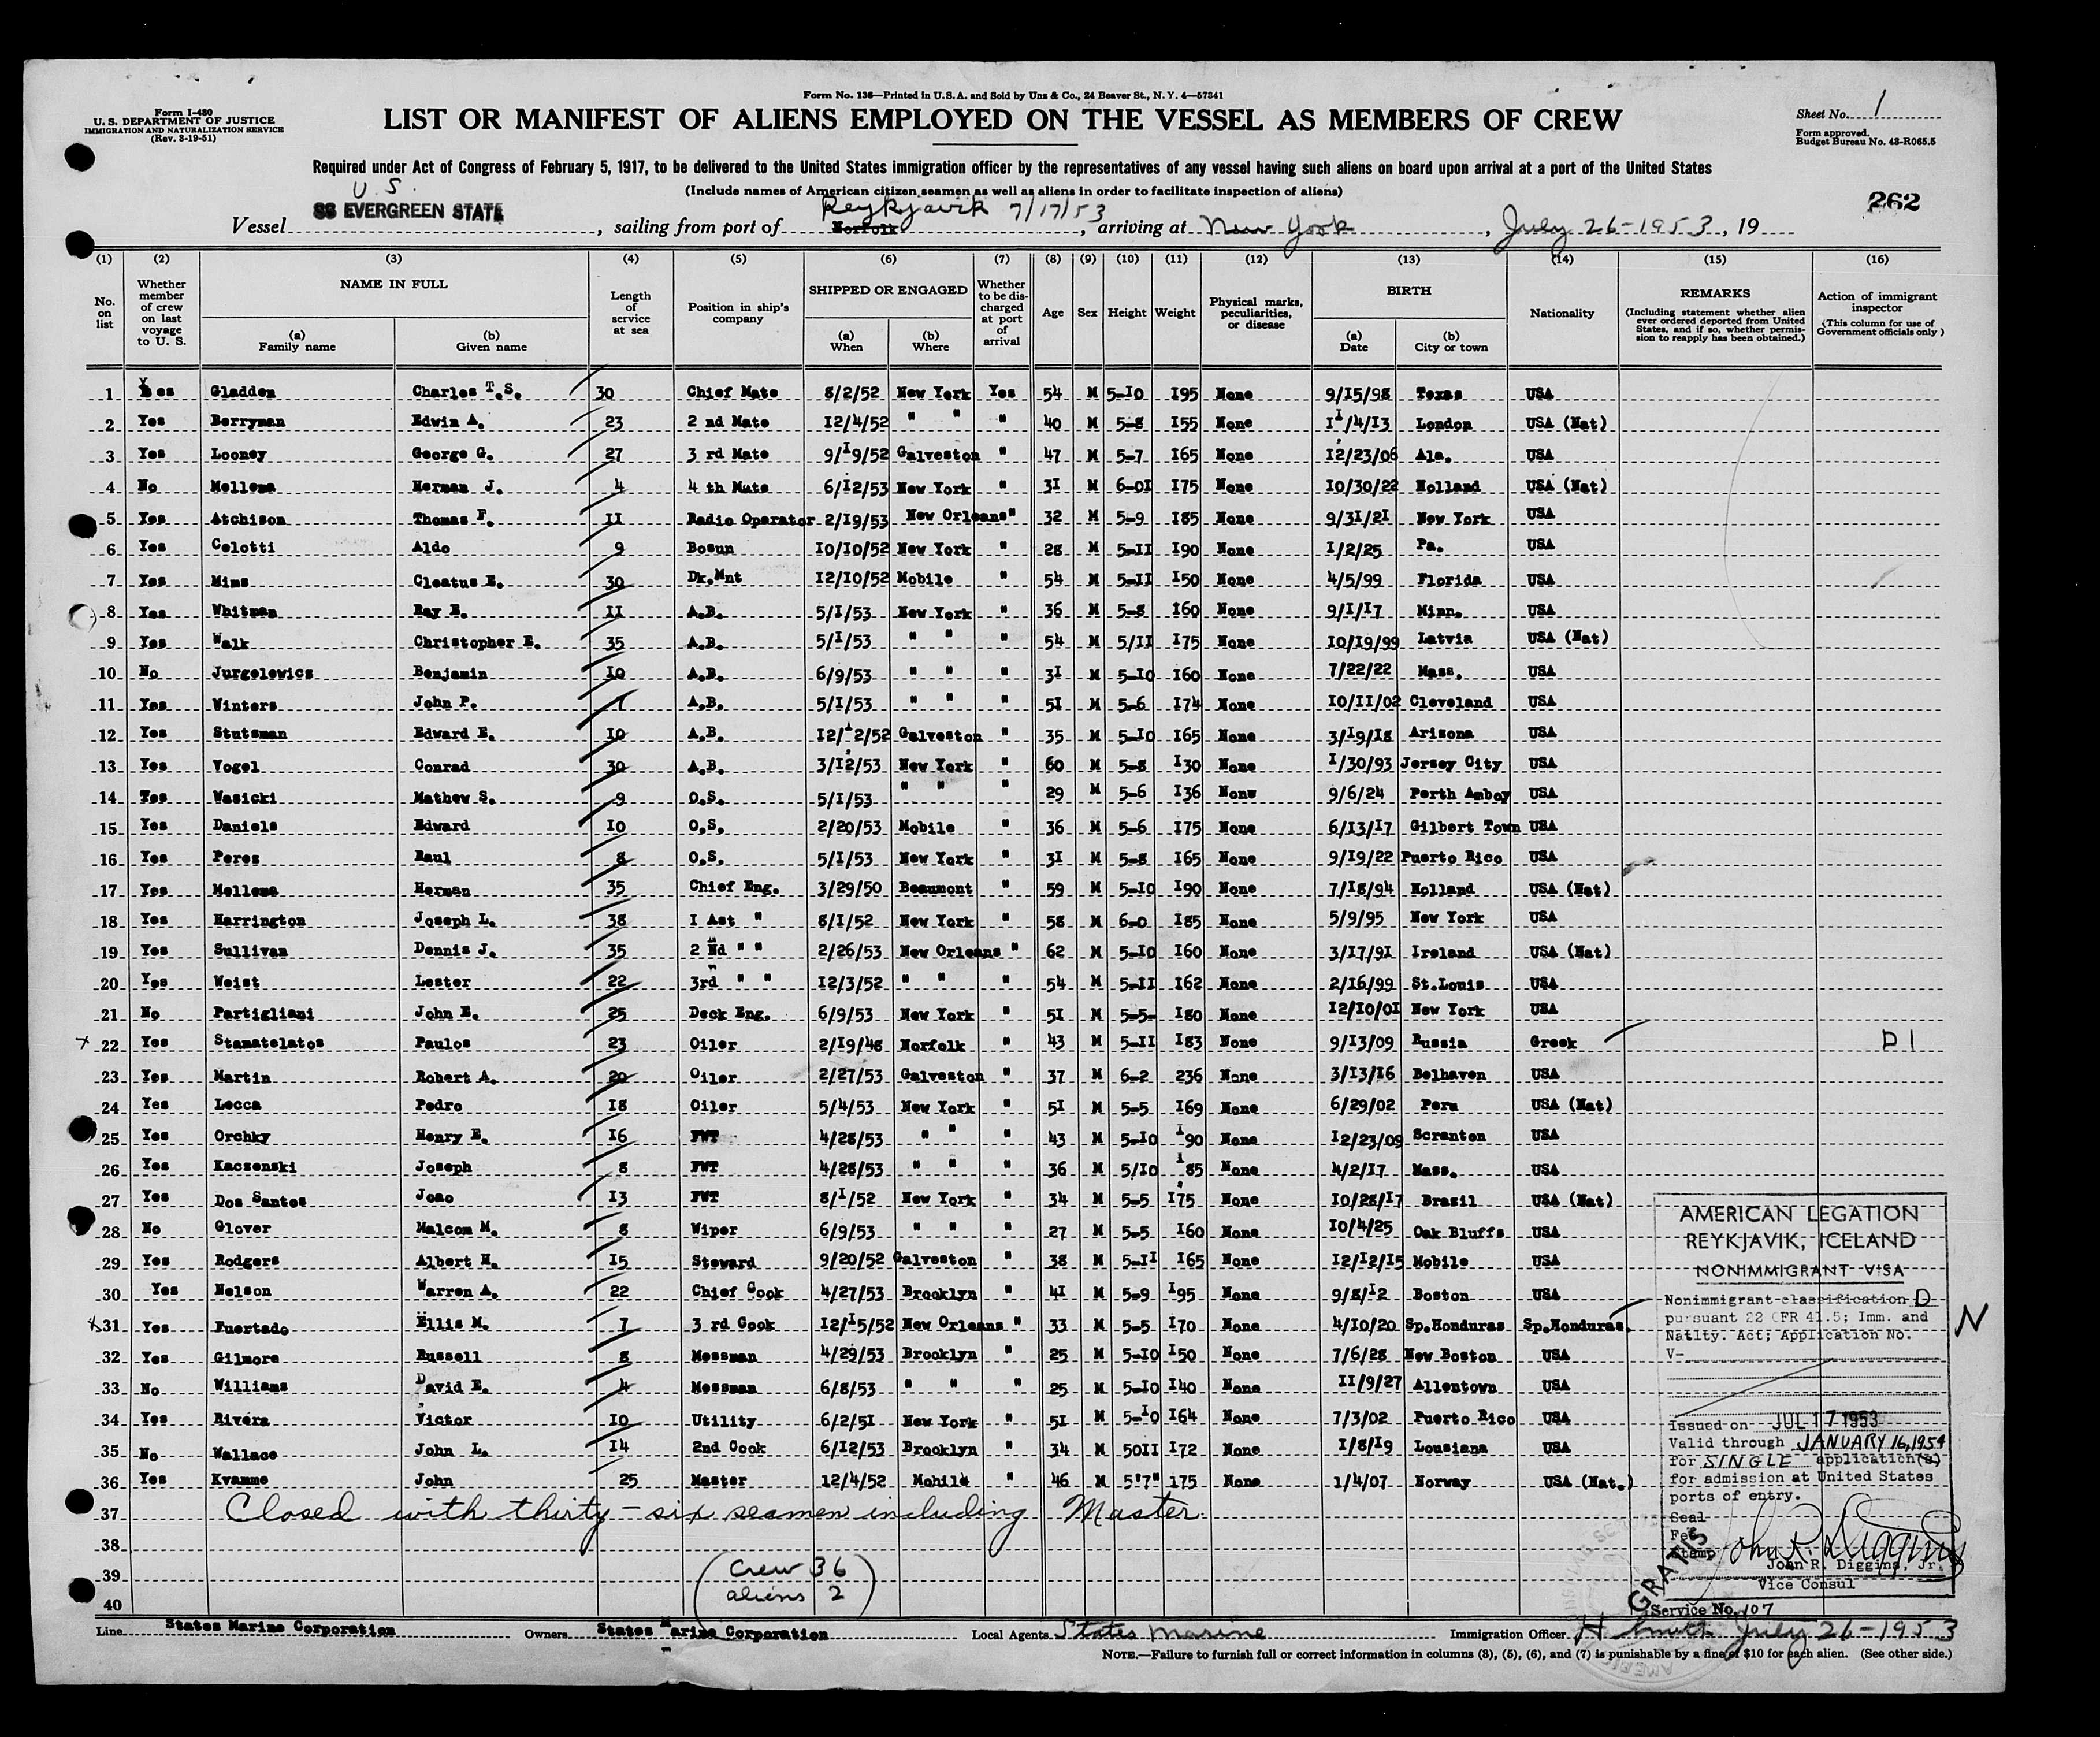 Form No. 136—Printed in U.S.A. and Sold by Unz & Co., 24 Beaver St., N. Y. 4—57341
Form I-480
U. S. DEPARTMENT OF JUSTICE
IMMIGRATION AND NATURALIZATION SERVICE
(Rev. 3-19-51)
LIST OR MANIFEST OF ALIENS EMPLOYED ON THE VESSEL AS MEMBERS OF CREW
Sheet No. 1
Form approved.
Budget Bureau No. 43-R065.5
Required under Act of Congress of February 5, 1917, to be delivered to the United States immigration officer by the representatives of any vessel having such aliens on board upon arrival at a port of the United States
(Include names of American citizen seamen as well as aliens in order to facilitate inspection of aliens)
262
U S.
Reykjavik 7/17/53
Vessel SS EVERGREEN STATE, sailing from port of Norfolk, arriving at New York, July 26-1953, 19
(1) (2) (3) (4) (5) (6) (7) (8) (9) (10) (11) (12) (13) (14) (15) (16)
No. on list
Whether member of crew on last voyage to U. S.
NAME IN FULL
(a) Family name
(b) Given name
Length of service at sea
Position in ship's company
SHIPPED OR ENGAGED
(a) When
(b) Where
Whether to be discharged at port of arrival
Age
Sex
Height
Weight
Physical marks, peculiarities, or disease
BIRTH
(a) Date
(b) City or town
Nationality
REMARKS
(Including statement whether alien ever ordered deported from United States, and if so, whether permission to reapply has been obtained.)
Action of immigrant inspector
(This column for use of Government officials only)
1 Yes Gladden Charles T.S. 30 Chief Mate 8/2/52 New York Yes 54 M 5-10 195 None 9/15/98 Texas USA
2 Yes Berryman Edwin A. 23 2 nd Mate 12/4/52 " " " 40 M 5-8 155 None 11/4/13 London USA (Nat)
3 Yes Looney George G. 27 3 rd Mate 9/19/52 Galveston " 47 M 5-7 165 None 12/23/06 Ala. USA
4 No Mellema Herman J. 4 4 th Mate 6/12/53 New York " 31 M 6-01 175 None 10/30/22 Holland USA (Nat)
5 Yes Atchison Thomas F. 11 Radio Operator 2/19/53 New Orleans " 32 M 5-9 185 None 9/31/21 New York USA
6 Yes Celotti Aldo 9 Bosun 10/10/52 New York " 28 M 5-11 190 None 1/2/25 Pa. USA
7 Yes Mims Cleatus E. 30 Dk.Mnt 12/10/52 Mobile " 54 M 5-11 150 None 4/5/99 Florida USA
8 Yes Whitman Ray E. 11 A.B. 5/1/53 New York " 36 M 5-8 160 None 9/1/17 Minn. USA
9 Yes Walk Christopher E. 35 A.B. 5/1/53 " " " 54 M 5/11 175 None 10/19/99 Latvia USA (Nat)
10 No Jurgelewics Benjamin 10 A.B. 6/9/53 " " " 31 M 5-10 160 None 7/22/22 Mass. USA
11 Yes Winters John P. 7 A.B. 5/1/53 " " " 51 M 5-6 174 None 10/11/02 Cleveland USA
12 Yes Stutsman Edward E. 10 A.B. 12/12/52 Galveston " 35 M 5-10 165 None 3/19/18 Arizona USA
13 Yes Vogel Conrad 30 A.B. 3/12/53 New York " 60 M 5-8 130 None 1/30/93 Jersey City USA
14 Yes Wasicki Mathew S. 9 O.S. 5/1/53 " " " 29 M 5-6 136 None 9/6/24 Perth Amboy USA
15 Yes Daniels Edward 10 O.S. 2/20/53 Mobile " 36 M 5-6 175 None 6/13/17 Gilbert Town USA
16 Yes Perez Raul 8 O.S. 5/1/53 New York " 31 M 5-8 165 None 9/19/22 Puerto Rico USA
17 Yes Mellema Herman 35 Chief Eng. 3/29/50 Beaumont " 59 M 5-10 190 None 7/18/94 Holland USA (Nat)
18 Yes Harrington Joseph L. 38 1 Ast " 8/1/52 New York " 58 M 6-0 185 None 5/9/95 New York USA
19 Yes Sullivan Dennis J. 35 2 Nd " " 2/26/53 New Orleans " 62 M 5-10 160 None 3/17/91 Ireland USA (Nat)
20 Yes Weist Lester 22 3rd " " 12/3/52 " " 54 M 5-11 162 None 2/16/99 St.Louis USA
21 No Partigliani John E. 25 Deck Eng. 6/9/53 New York " 51 M 5-5- 180 None 12/10/01 New York USA
x 22 Yes Stamatelatos Paulos 23 Oiler 2/19/48 Norfolk " 43 M 5-11 183 None 9/13/09 Russia Greek D 1
23 Yes Martin Robert A. 20 Oiler 2/27/53 Galveston " 37 M 6-2 236 None 3/13/16 Belhaven USA
24 Yes Lecca Pedro 18 Oiler 5/4/53 New York " 51 M 5-5 169 None 6/29/02 Peru USA (Nat)
25 Yes Orchky Henry E. 16 FWT 4/28/53 " " " 43 M 5-10 190 None 12/23/09 Scranton USA
26 Yes Kaczenski Joseph 8 FWT 4/28/53 " " " 36 M 5/10 185 None 4/2/17 Mass. USA
27 Yes Dos Santos Joao 13 FWT 8/1/52 New York " 34 M 5-5 175 None 10/28/17 Brasil USA (Nat)
28 No Glover Malcom M. 8 Wiper 6/9/53 " " " 27 M 5-5 160 None 10/4/25 Oak Bluffs USA
29 Yes Rodgers Albert H. 15 Steward 9/20/52 Galveston " 38 M 5-11 165 None 12/12/15 Mobile USA
30 Yes Nelson Warren A. 22 Chief Cook 4/27/53 Brooklyn " 41 M 5-9 195 None 9/8/12 Boston USA
x 31 Yes Fuertado Ellis M. 7 3 rd Cook 12/15/52 New Orleans " 33 M 5-5 170 None 4/10/20 Sp.Honduras Sp.Honduras. N
32 Yes Gilmore Russell 8 Messman 4/29/53 Brooklyn " 25 M 5-10 150 None 7/6/28 New Boston USA
33 No Williams David E. 4 Messman 6/8/53 " " " 25 M 5-10 140 None 11/9/27 Allentown USA
34 Yes Rivera Victor 10 Utility 6/2/51 New York " 51 M 5-10 164 None 7/3/02 Puerto Rico USA
35 No Wallace John L. 14 2nd Cook 6/12/53 Brooklyn " 34 M 5011 172 None 1/8/19 Lousiana USA
36 Yes Kvamme John 25 Master 12/4/52 Mobile " 46 M 5'7" 175 None 1/4/07 Norway USA (Nat.)
37 Closed with thirty-six seamen including Master.
38
39 Crew 36
aliens 2
40
AMERICAN LEGATION
REYKJAVIK, ICELAND
NONIMMIGRANT VISA
Nonimmigrant classification D
pursuant 22 CFR 41.5; Imm. and
Natlty. Act; Application No.
V-
Issued on JUL 17 1953
Valid through JANUARY 16, 1954
for SINGLE application(s)
for admission at United States
ports of entry.
Seal
Fee
Stamp John R. Diggins Jr.
John R. Diggins, Jr.
Vice Consul
GRATIS
Service No. 107
Line States Marine Corporation Owners States Marine Corporation Local Agents States Marine Immigration Officer H Smith July 26-1953
NOTE.—Failure to furnish full or correct information in columns (3), (5), (6), and (7) is punishable by a fine of $10 for each alien. (See other side.)